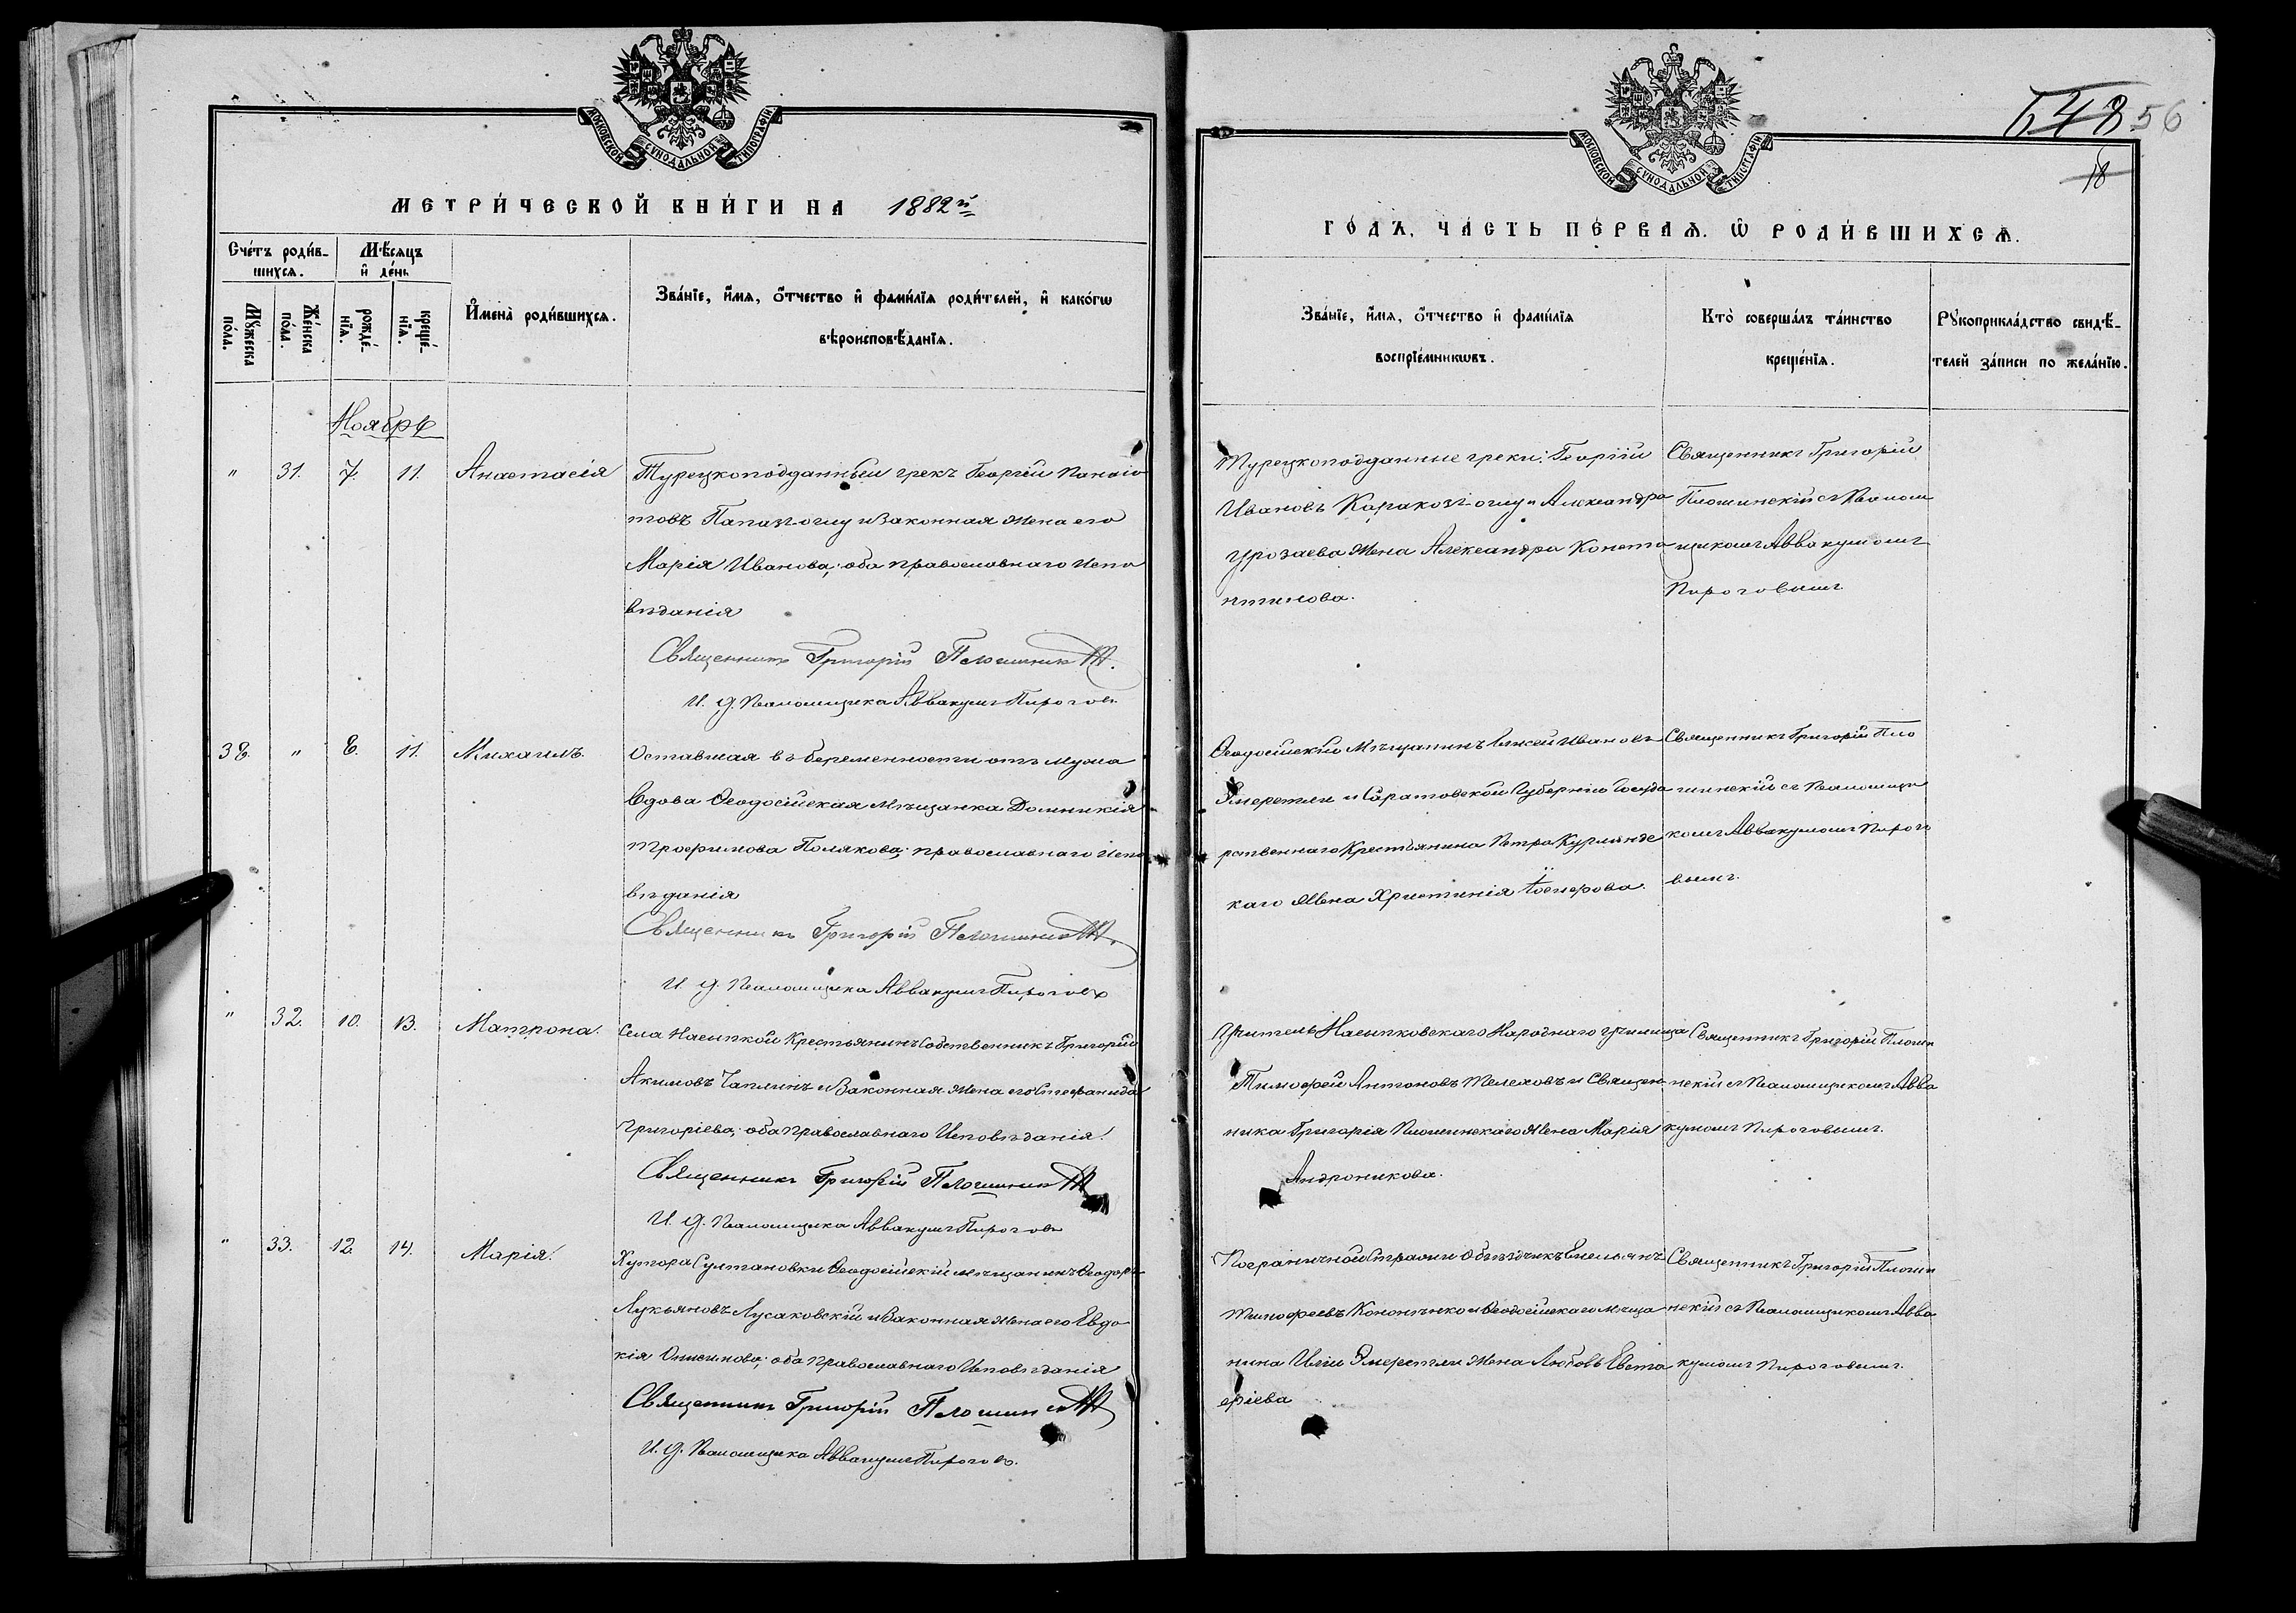 МОСКОВСКОЙ СУНОДАЛЬНОЙ ТИПОГРАФІИ
МЕТРИ́ЧЕСКОЙ КНИ́ГИ НА 1882й
Сче́тъ роди́в-
шихся.
Мѣ́сяцъ
и҆ де́нь
Мꙋ́жеска
по́ла.
Же́нска
по́ла.
рожде́-
нїя.
креще́-
нїя.
И҆мена̀ роди́вшихся.
Зва́нїе, и҆́мя, ѻ҆́тчество и҆ фами́лїя роди́телей, и҆ како́гѡ
вѣроисповѣ́данїя.
Ноябрь
" 31. 7. 11. Анастасія
Турецкоподданный грекъ Георгій Панаіо
товъ Папазъ-оглу и законная жена его
Марія Иванова; оба православнаго испо
вѣданія
Священникъ Григорій Плошинскій
И. д. Псаломщика Аввакумъ Пироговъ
38. " 8. 11. Михаилъ.
Оставшая въ беременности отъ мужа
вдова Ѳеодосійская мѣщанка Домникія
Трофимова Полякова; православнаго испо
вѣданія
Священникъ Григорій Плошинскій
И. д. Псаломщика Аввакумъ Пироговъ
" 32. 10. 13. Матрона.
Села Насыпкой Крестьянинъ Собственникъ Григорій
Акимовъ Чаплинъ и Законная жена его Стефанида
Григоріева; оба православнаго Исповѣданія.
Священникъ Григорій Плошинскій
И. д. Псаломщика Аввакумъ Пироговъ
" 33. 12. 14. Марія.
Хутора Султановки Ѳеодосійскій мѣщанинъ Ѳеодоръ
Лукьяновъ Лусаковскій и Законная жена его Евдо
кія Онисимова; оба православнаго Исповѣданія
Священникъ Григорій Плошинскій
И. д. Псаломщика Аввакумъ Пироговъ.
548 56
18
МОСКОВСКОЙ СУНОДАЛЬНОЙ ТИПОГРАФІИ
ГО́ДЪ, ЧА́СТЬ ПЕ́РВАЯ. Ѡ҆ РОДИ́ВШИХСЯ.
Зва́нїе, и҆́мя, ѻ҆́тчество и҆ фами́лїя
воспрїе́мникѡвъ.
Кто̀ соверша́лъ та́инство
креще́нїя.
Рꙋкоприкла́дство свидѣ́-
телей за́писи по жела́нїю.
Турецкоподданные греки: Георгій
Ивановъ Каракозъ-оглу и Александра
жена Александра Конста
нтинова.
Священникъ Григорій
Плошинскій съ Псалом
щикомъ Аввакумомъ
Пироговымъ
Ѳеодосійскій Мѣщанинъ Ивановъ
Эмеретли и Саратовской Губерніи Госуда
рственнаго Крестьянина Петра Курлянд
каго жена Христинія
Священникъ Григорій Пло
шинскій съ Псаломщи
комъ Аввакумомъ Пирого
вымъ.
Учитель Насыпковскаго Народнаго училища
Тимофей Антоновъ Телеховъ и Священ
ника Григорія Плошинскаго жена Марія
Андроникова.
Священникъ Григорій Плошин
скій съ Псаломщикомъ Авва
кумомъ Пироговымъ.
Пограничной Стражи Объѣздчикъ Емельянъ
Тимофеевъ Кононенко и Ѳеодосійскаго мѣща
нина Ильи Эмеретли жена Любовь Евста
фіева
Священникъ Григорій Плошин
скій съ Псаломщикомъ Авва
кумомъ Пироговымъ.